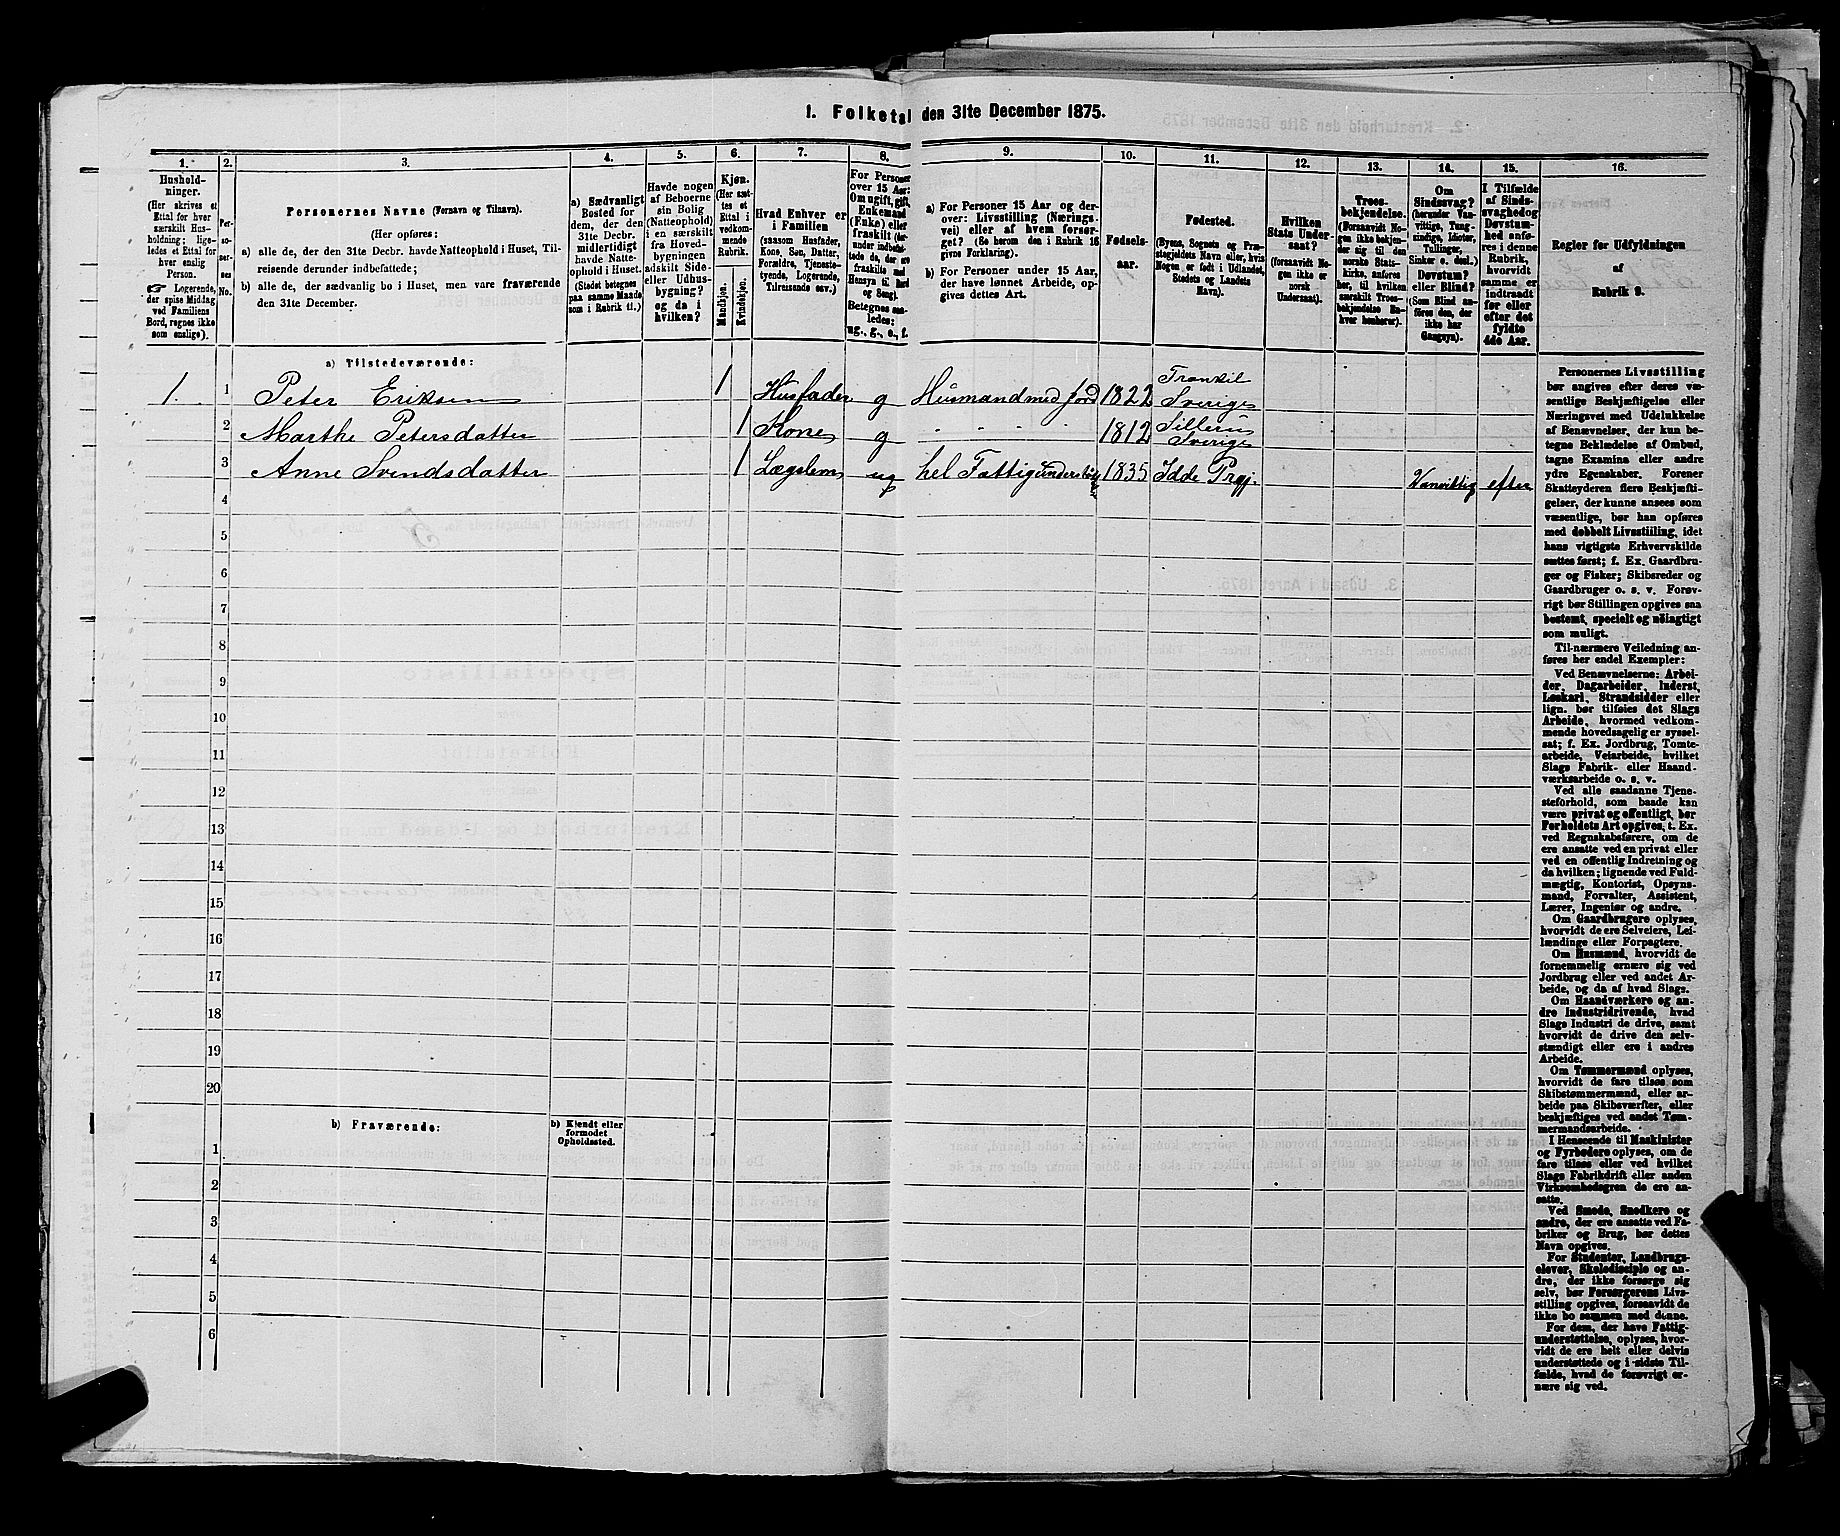 1. Folketal den 31te December 1875.
1.
2.
3.
4.
5.
6.
7.
8.
9.
10.
11.
12.
13.
14.
15.
16.
Hushold-
ninger.
(Her skrives et
Ettal for hver
særskilt Hus-
holdning; lige-
ledes et Ettal for
hver enslig
Person.
☞ Logerende,
der spise Middag
ved Familiens
Bord, regnes ikke
som enslige).
Per-
so-
ner-
nes
No.
Personernes Navne (Fornavn og Tilnavn).
(Her opføres:
a) alle de, der den 31te Decbr. havde Natteophold i Huset, Til-
reisende derunder indbefattede;
b) alle de, der sædvanlig bo i Huset, men vare fraværende
den 31te December.
a) Sædvanligt
Bosted for
dem, der den
31te Decbr.
midlertidigt
havde Natte-
ophold i Huset.
(Stedet betegnes
paa samme Maade
som i Rubrik 11.)
Havde nogen
af Beboerne
sin Bolig
(Natteophold)
i en særskilt
fra Hoved-
bygningen
adskilt Side-
eller Udhus-
bygning?
og da i
hvilken?
Kjøn.
(Her sæt-
tes et
Ettal i
vedkom-
mende
Rubrik.
Mandkjøn.
Kvindekjøn.
Hvad Enhver er
i Familien
(saasom Husfader,
Kone, Søn, Datter,
Forældre, Tjeneste-
tyende, Logerende,
Tilreisende osv.)
For Personer
over 15 Aar:
Om ugift, gift,
Enkemand
(Enke) eller
fraskilt
Betegnes saa-
ledes:
ug., g., e., f.
a) For Personer 15 Aar og der-
over: Livsstilling (Nærings-
vei) eller af hvem forsør-
get? (Se herom den i Rubrik 16
givne Forklaring).
b) For Personer under 15 Aar,
der have lønnet Arbeide, op-
gives dettes Art.
Fødsels-
aar.
Fødested.
(Byens, Sognets og Præ-
stegjeldets Navn eller, hvis
Nogen er født i Udlandet,
Stedets og Landets
Navn).
Hvilken
Stats Under-
saat?
(foraavidt No-
gen ikke er
norsk
Undersaat).
Troes-
bekjendelse.
(Foraavidt No-
gen ikke bekjen-
der sig til den
norske Stats-
kirke, anføres
her, til hvilken
særskilt Troes-
bekjendelse En-
hver henhører).
Om
Sindssvag?
(herunder Van-
vittige, Tung-
sindige, Idioter,
Tullinger,
Sinker o. desl.).
Døvstum?
eller Blind?
(Som Blind an-
føres den, der
ikke har
Gangsyn).
I Tilfælde
af Sinds-
svaghed og
Døvstum-
hed anfø-
res i denne
Rubrik,
hvorvidt
samme er
indtraadt
før eller
efter det
fyldte
4de Aar.
Regler for Udfyldningen
af
Rubrik 9.
a) Tilstedeværende:
1. 1 Peter Eriksen 1 Husfader g Husmand med Jord 1822 Trankil Sverige
2 Marthe Petersdatter 1 Kone g " " " 1812 Sillerud Sverige
3 Anne Svendsdatter 1 Lægslem ug hel Fattigunderstøtt. 1835 Idde Prgj. Vanvittig efter
4
5
6
7
8
9
10
11
12
13
14
15
16
17
18
19
20
b) Fraværende:
b) Kjendt eller
formodet
Opholdssted.
1
2
3
4
5
6
Personernes Livsstilling
bør angives efter deres væ-
sentlige Beskjæftigelse eller
Næringsvei med Udelukkelse
af Benævnelser, der kun be-
tegne Beklædelse af Ombud,
tagne Examina eller andre
ydre Egenskaber. Forener
Skatteyderen flere Beskjæfti-
gelser, der kunne ansees som
væsentlige, bør han opføres
med dobbelt Livsstilling, idet
hans vigtigste Erhvervskilde
sættes først; f. Ex. Gaardbru-
ger og Fisker; Skibsreder og
Gaardbruger o. s. v. Forøv-
rigt bør Stillingen opgives saa
bestemt, specielt og nøiagtigt
som muligt.
Til nærmere Veiledning an-
føres her endel Exempler:
Ved Benævnelserne: Arbei-
der, Dagarbeider, Inderst,
Løskarl, Strandsidder eller
lign. bør tilføies det Slags
Arbeide, hvormed vedkom-
mende hovedsagelig er syssel-
sat; f. Ex. Jordbrug, Tomte-
arbeide, Veiarbeide, hvilket
Slags Fabrik- eller Haand-
værksarbeide o. s. v.
Ved alle saadanne Tjene-
steforhold, som baade kan
være privat og offentligt, bør
Forholdets Art opgives, t. Ex.
ved Regnskabsførere, om de
ere ansatte ved en privat eller
ved en offentlig Indretning og
da hvilken; lignende ved Fuld-
mægtig, Kontorist, Opsyns-
mand, Forvalter, Assistent,
Lærer, Ingeniør og andre.
Om Gaardbrugere oplyses,
hvorvidt de ere Selveiere, Lei-
lændinge eller Forpagtere.
Om Husmænd, hvorvidt de
fornemmelig ernære sig ved
Jordbrug eller ved andet Ar-
beide, og da af hvad Slags.
Om Haandværkere og an-
dre Industridrivende, hvad
Slags Industri de drive, samt
hvorvidt de drive den selv-
stændigt eller ere i andres
Arbeide.
Om Tømmermænd oplyses,
hvorvidt de fare tilsøs som
Skibstømmermænd, eller ar-
beide paa Skibsværfter, eller
beskjæftiges ved andet Tøm-
mermandsarbeide.
I Henseende til Maskinister
og Fyrbødere oplyses, om de
fare tilsøs eller ved hvilket
Slags Fabrikdrift eller anden
Virksomhedsgren de ere an-
satte.
Ved Smede, Snedkere og
andre, der ere ansatte ved Fa-
briker og Brug, bør dettes
Navn opgives.
For Studenter, Landbrugs-
elever, Skoledisciple og an-
dre, der ikke forsørge sig
selv, bør Forsørgerens Livs-
stilling opgives, forsaavidt de
ikke bo sammen med denne.
For dem, der have Fattig-
understøttelse, oplyses, hvor-
vidt de ere helt eller delvis
understøttede og i sidste Til-
fælde, hvad de forøvrigt er-
nære sig ved.